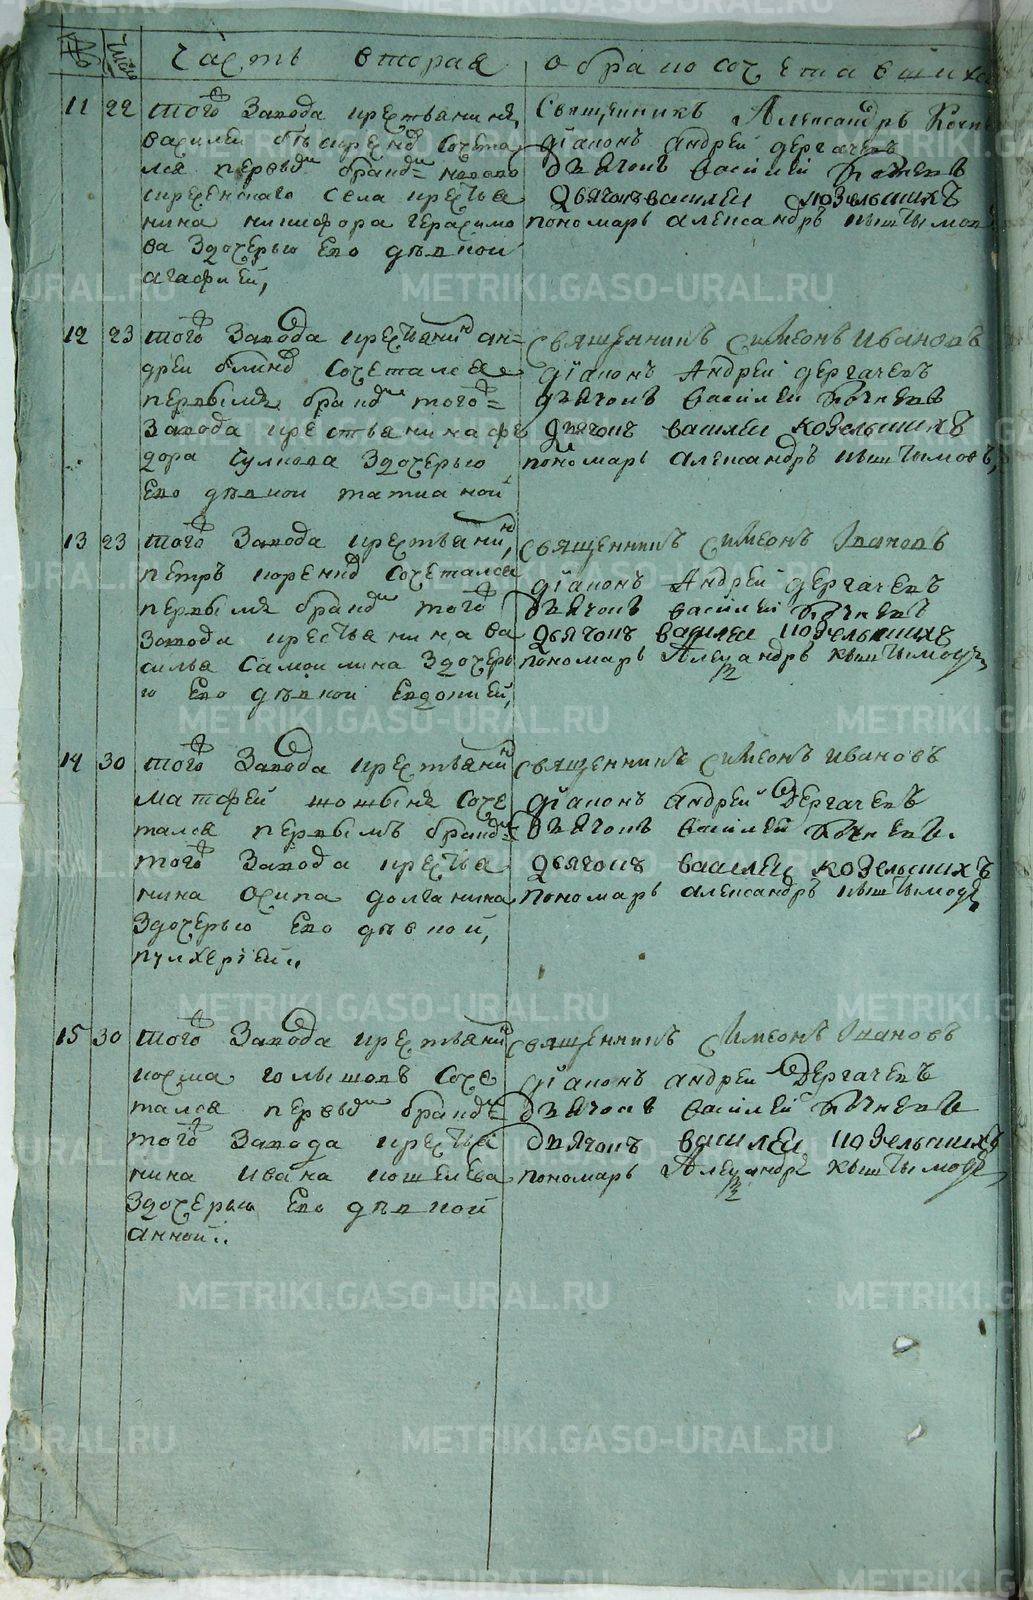 № число Часть вторая о бракосочетавшихся
11 22 того Завода крестьянинъ
василей сочета
лся первымъ бракомъ ново
срѣтенскаго села крестья
нина никифора герасимо
ва Здочерью Ево дѣвкой
агафией,
Священникъ Александръ
діаконъ андрей дергачевъ
дьячокъ василей
дьячокъ василеи козельскихъ
пономарь александръ кыштымовъ
12 23 того Завода крестьянинъ ан-
дреи блинов сочетался
первымъ бракомъ того=
Завода крестьянина фе
дора чулкова Здочерью
Ево дѣвкой татианой
священникъ симеонъ ивановъ
діаконъ Андрей дергачевъ
дьячокъ василей
дьячокъ василеи козельскихъ
пономарь александръ кыштымовъ,
13 23 того Завода крестьянинъ,
петръ коренев сочетался
первымъ бракомъ того
Завода крестьянина ва
силья самоилина Здочерь
ю Ево дѣвкой Евдокией,
священникъ симеонъ Ивановъ
діаконъ Андрей дергачевъ
дьячокъ василей
дьячокъ василеи козельскихъ
пономарь Александръ кыштымовъ
14 30 того Завода крестьянинъ
матфей соче
тался первымъ бракомъ=
того Завода крестья
нина осипа долганина
Здочерью Ево дѣвкой,
пулхеріей.
священникъ симеонъ ивановъ
діаконъ андрей Дергачевъ
дьячокъ василей
дьячокъ василеи козельскихъ
пономарь александръ кыштымовъ
15 30 того Завода крестьянинъ
косма голышовъ соче
тался первымъ бракомъ
того Завода крестья
нина ивана кошелева
Здочерью Ево дѣвкой
анной.
священникъ Симеонъ Ивановъ
діаконъ андреи Дергачевъ
дьячокъ василей
дьячокъ василеи козельскихъ
пономарь Александръ кыштымовъ
METRIKI.GASO-URAL.RU